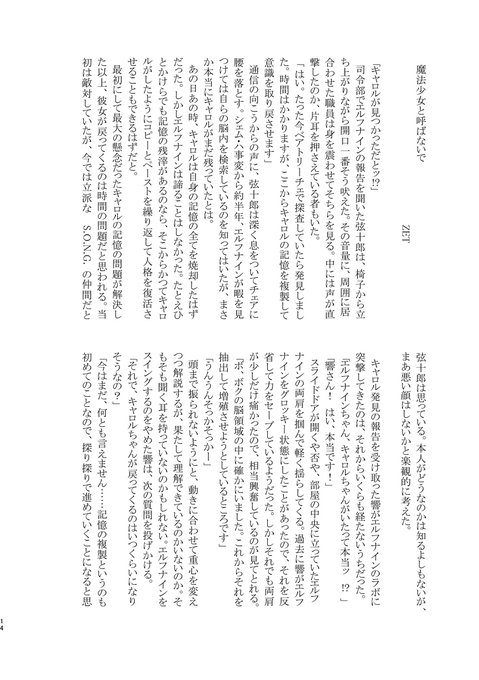 魔法少女と呼ばないで
ZET
「キャロルが見つかっただとッ!?」
司令部でエルフナインの報告を聞いた弦十郎は、椅子から立
ち上がりながら開口一番そう吠えた。その音量に、周囲に居
合わせた職員は身を震わせてそちらを見る。中には声が直
撃したのか、片耳を押さえている者もいた。
「はい。たった今ベアトリーチェで探査していたら発見しまし
た。時間はかかりますが、ここからキャロルの記憶を複製して
意識を取り戻させます」
通信の向こうからの声に、弦十郎は深く息をついてチェアに
腰を落とす。シェム・ハ事変から約半年、エルフナインが暇を見
つけては自らの脳内を検索しているのを知ってはいたが、まさ
か本当にキャロルがまだ残っていたとは。
あの日あの時、キャロルは自身の記憶の全てを焼却したはず
だった。しかしエルフナインは諦めることはしなかった。たとえひ
とかけらでも記憶の残滓があるのなら、そこからかつてキャロ
ルがしたようにコピーとペーストを繰り返して人格を復活さ
せることもできるはずだと。
最初にして最大の懸念だったキャロルの記憶の問題が解決し
た以上、彼女が戻ってくるのは時間の問題だと思われる。当
初は敵対していたが、今では立派な S.O.N.G. の仲間だと
弦十郎は思っている。本人がどうなのかは知るよしもないが、
まあ悪い顔はしないかと楽観的に考えた。
キャロル発見の報告を受け取った響がエルフナインのラボに
突撃してきたのは、それからいくらも経たないうちだった。
「エルフナインちゃん、キャロルちゃんがいたって本当ッ!?」
「響さん! はい、本当です!」
スライドドアが開くや否や、部屋の中央に立っていたエルフ
ナインの両肩を掴んで軽く揺らしてくる。過去に響がエルフ
ナインをグロッキー状態にしたことがあったので、それを反
省して力をセーブしているようだった。しかしそれでも両肩
が少しだけ痛かったので、相当興奮しているのが見てとれる。
「ボ、ボクの脳領域の中に確かにいました。これからそれを
抽出して増殖させようとしているところです」
「うんうんそっかそっかー」
頭まで振られないようにと、動きに合わせて重心を変え
つつ解説するが、果たして理解できているのかいないのか。そ
もそも聞く耳を持っていないのかもしれない。エルフナインを
スイングするのをやめた響は、次の質問を投げかける。
「それで、キャロルちゃんが戻ってくるのはいつくらいになり
そうなの?」
「今はまだ、何とも言えません……記憶の複製というのも
初めてのことなので、探り探りで進めていくことになると思
14